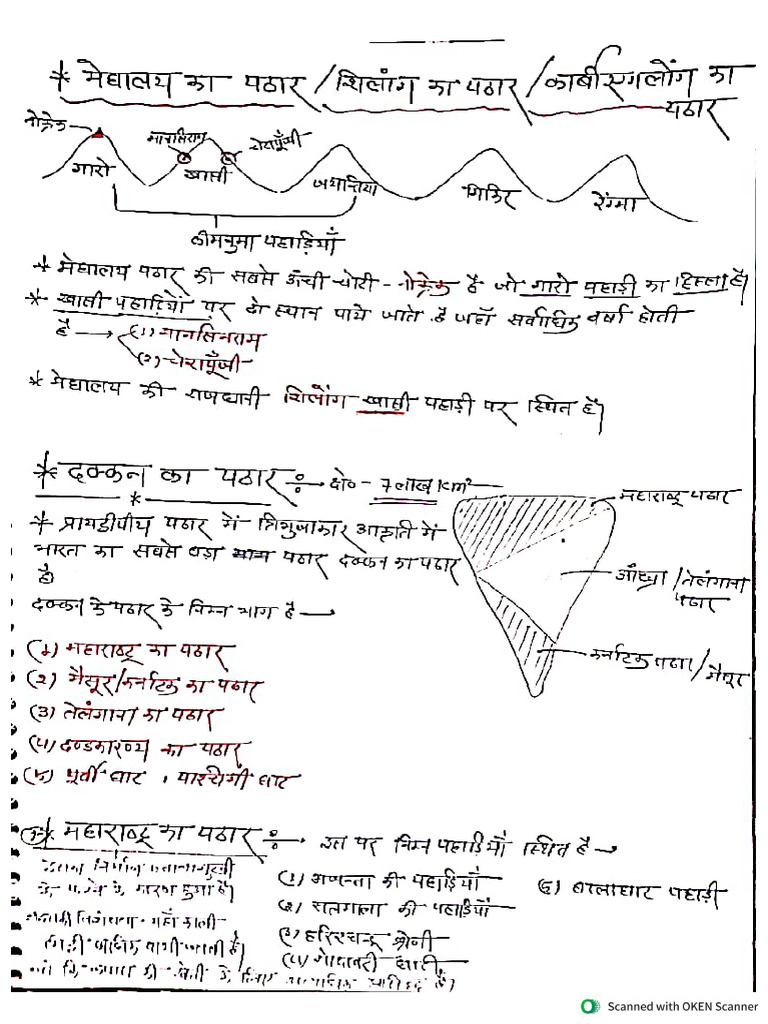 * मेघालय का पठार / शिलांग का पठार / कार्बीएंगलोंग का
पठार
नोक्रेक
मानसिराम
चेरापूँजी
गारो
खासी
जयन्तिया
मिकिर
रेंग्मा
* मेघालय पठार की सबसे ऊँची चोटी - नोक्रेक है जो गारो पहाड़ी का हिस्सा है।
* खासी पहाड़ियों पर दो स्थान पाये जाते है जहाँ सर्वाधिक वर्षा होती
है → (1) मानसिनराम
(2) चेरापूँजी
* मेघालय की राजधानी शिलोंग खासी पहाड़ी पर स्थित है।
* दक्कन का पठार ÷ → क्षे० - 7 लाख KM²
महाराष्ट्र पठार
* प्रायद्वीपीय पठार में त्रिभुजाकार आकृति में
भारत का सबसे बड़ा पठार दक्कन का पठार
है।
आँध्रा / तेलंगाना
पठार
दक्कन के पठार के निम्न भाग है →
कर्नाटक पठार / मैसूर
(1) महाराष्ट्र का पठार
(2) मैसूर/कर्नाटक का पठार
(3) तेलंगाना का पठार
(4) दण्डकारण्य का पठार
(5) पूर्वी घाट, पश्चिमी घाट
* महाराष्ट्र का पठार ÷ इस पर निम्न पहाड़ियाँ स्थित है →
इसका निर्माण ज्वालामुखी
के के कारण हुआ है।
(1) अजन्ता की पहाड़ियाँ
(2) सतमाला की पहाड़ियाँ
(3) हरिश्चन्द्र श्रेणी
(4) गोदावरी घाटी
(5) बालाघाट पहाड़ी
विशेषता यहाँ काली
पायी जाती है
की खेती के लिए प्रसिद्ध है।
Scanned with OKEN Scanner